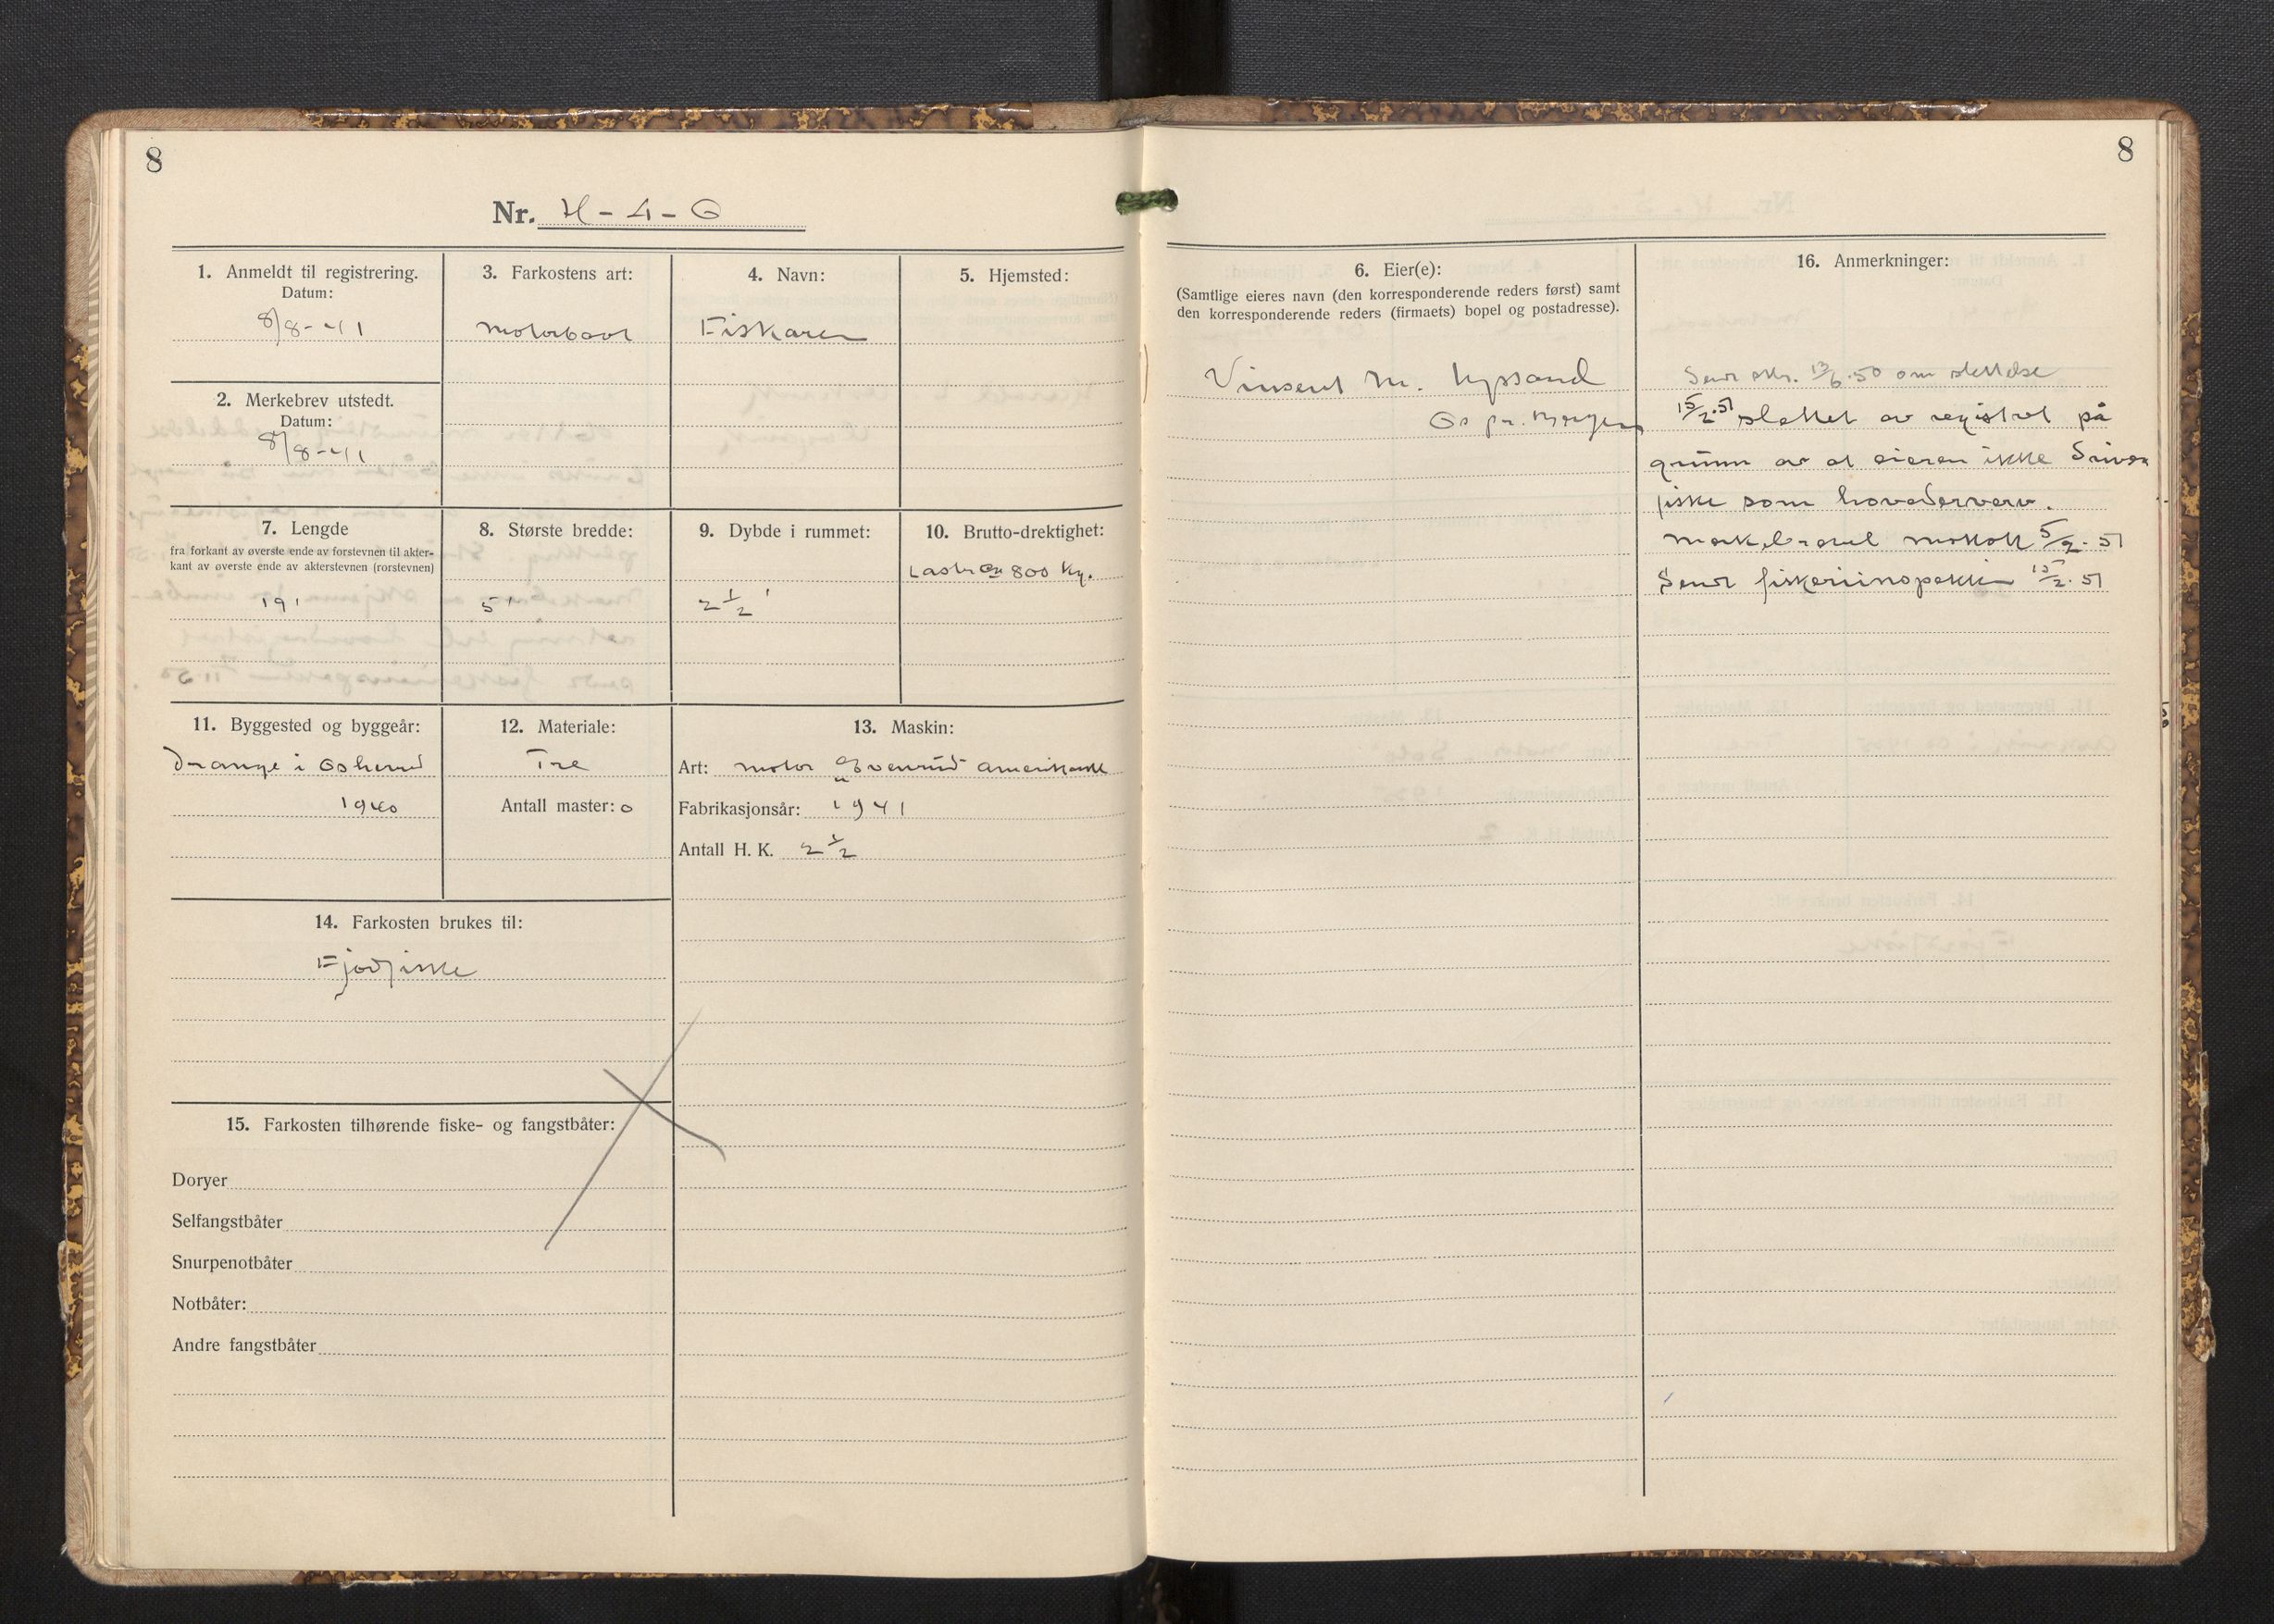 8
Nr. H - 4 - O
1. Anmeldt til registrering.
Datum:
8/8-41
2. Merkebrev utstedt.
Datum:
8/8-41
3. Farkostens art:
Motorbåt
4. Navn:
Fiskaren
5. Hjemsted:
7. Lengde
fra forkant av øverste ende av forstevnen til akter-
kant av øverste ende av akterstevnen (rorstevnen)
19'
8. Største bredde:
5'
9. Dybde i rummet:
2 1/2'
10. Brutto-drektighet:
Laster ca 800 kg.
11. Byggested og byggeår:
Drange i Os herred
1940
12. Materiale:
Tre
Antall master: 0
13. Maskin:
Art: motor Evenrud amerikansk
Fabrikasjonsår: 1941
Antall H. K. 2 1/2
14. Farkosten brukes til:
Fjordfiske
15. Farkosten tilhørende fiske- og fangstbåter:
Doryer
Selfangstbåter
Snurpenotbåter
Notbåter:
Andre fangstbåter
8
6. Eier(e):
(Samtlige eieres navn (den korresponderende reders først) samt
den korresponderende reders (firmaets) bopel og postadresse).
Vinsent M. Lyssand
Os pr. Bergen
16. Anmerkninger:
Sendt skr. 13/6-50 om slettelse
15/2-51 slettet av registret på
grunn av at eieren ikke driver
fiske som hovederverv.
Merkebrevet mottatt 5/2-51
Sendt fiskeriinspektøren 15/2-51